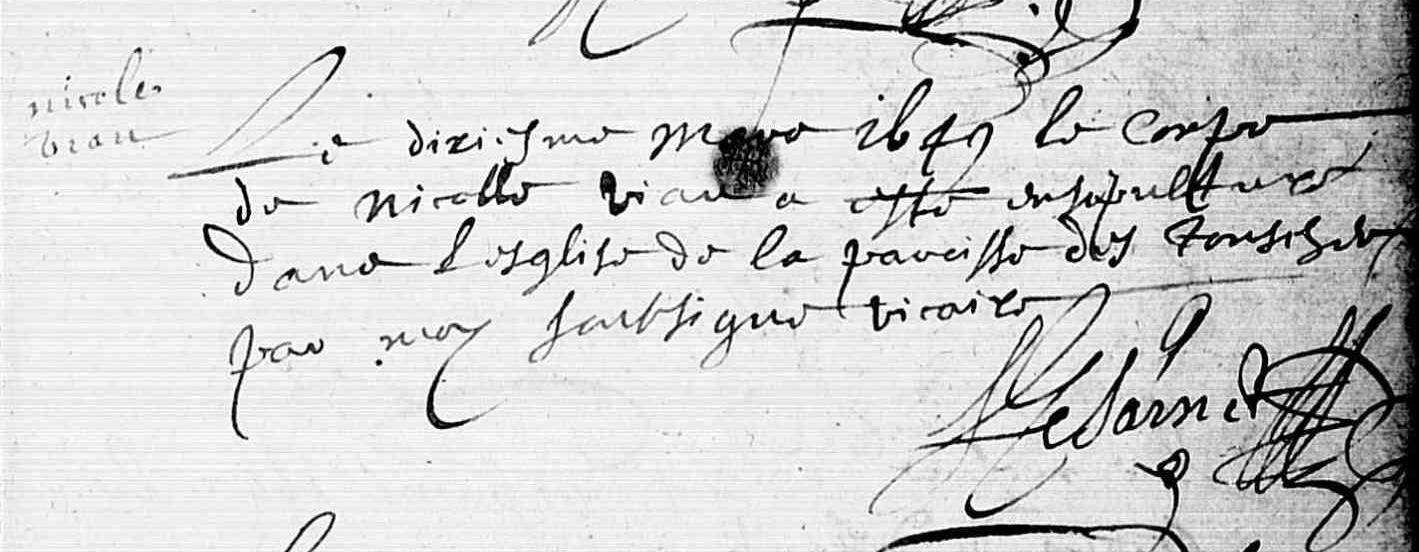 nicole
viau
Le diziesme Mars 1649 le Corps
de nicolle viau a esté ensepulturé
dans L'esglise de la paroisse des
par moy soubsigne vicaire